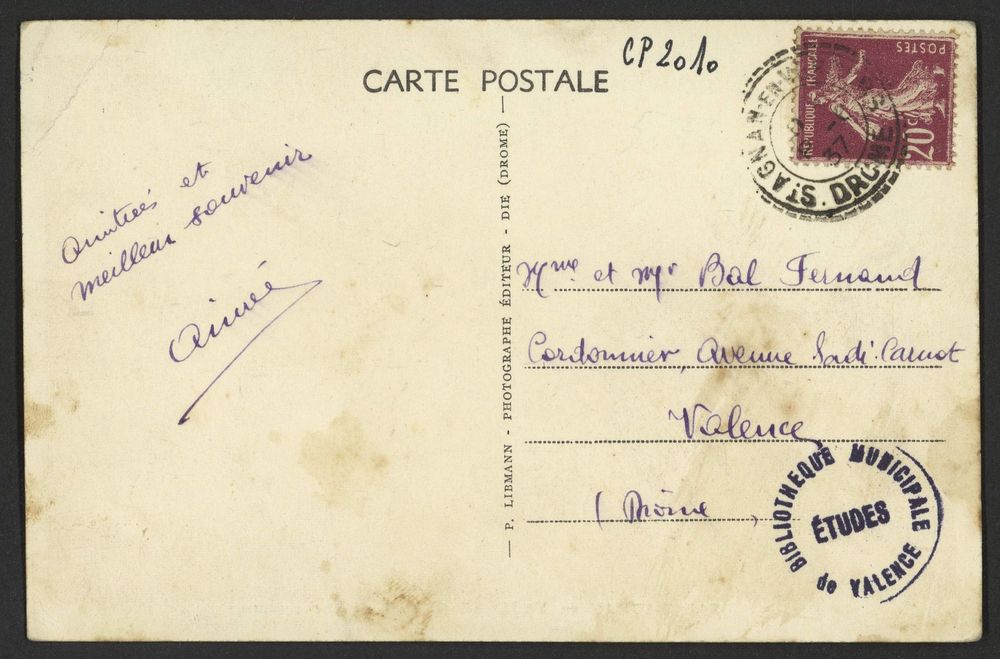 CP2010
CARTE POSTALE
POSTES
REPUBLIQUE FRANÇAISE
20 c
ST AGNAN-EN-VERCORS . DROME
37
Amitiés et
meilleur souvenir
Aimée
P. LIBMANN - PHOTOGRAPHE ÉDITEUR - DIE (DROME)
Mme et Mr Bal Fernand
Cordonnier, Avenue Sadi-Carnot
Valence
(Drôme)
BIBLIOTHEQUE MUNICIPALE
ÉTUDES
de VALENCE